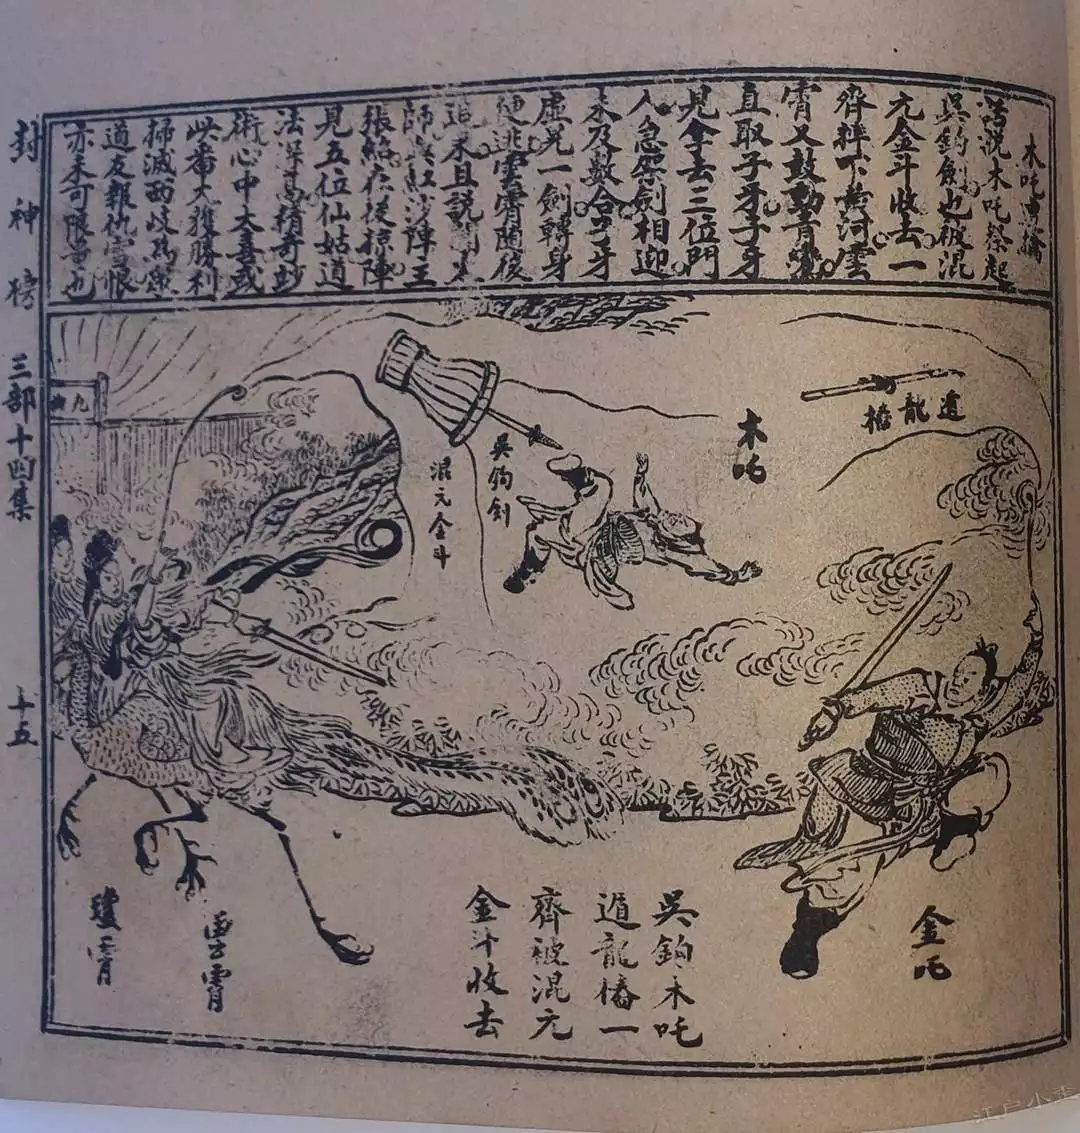 木吒
話說木吒祭起
吳鈎劍也被混
元金斗收去一
齊摔下黃河雲
霄又鼓動青鸞
直取子牙子牙
見拿去三位門
人急架劍相迎
未及數合子牙
虛晃一劍轉身
便逃雲霄隨後
追來且說聞太
師與紅沙陣王
張紹在後掠陣
見五位仙姑道
法深高精奇妙
術心中大喜或
此番大獲勝利
掃滅西岐為眾
道友報仇雪恨
亦未可限量也
遁龍樁
木吒
吳鈎劍
混元金斗
九曲
金吒
吳鈎木吒
遁龍樁一
齊被混元
金斗收去
雲霄
瓊霄
封神榜 三部十四集 十五